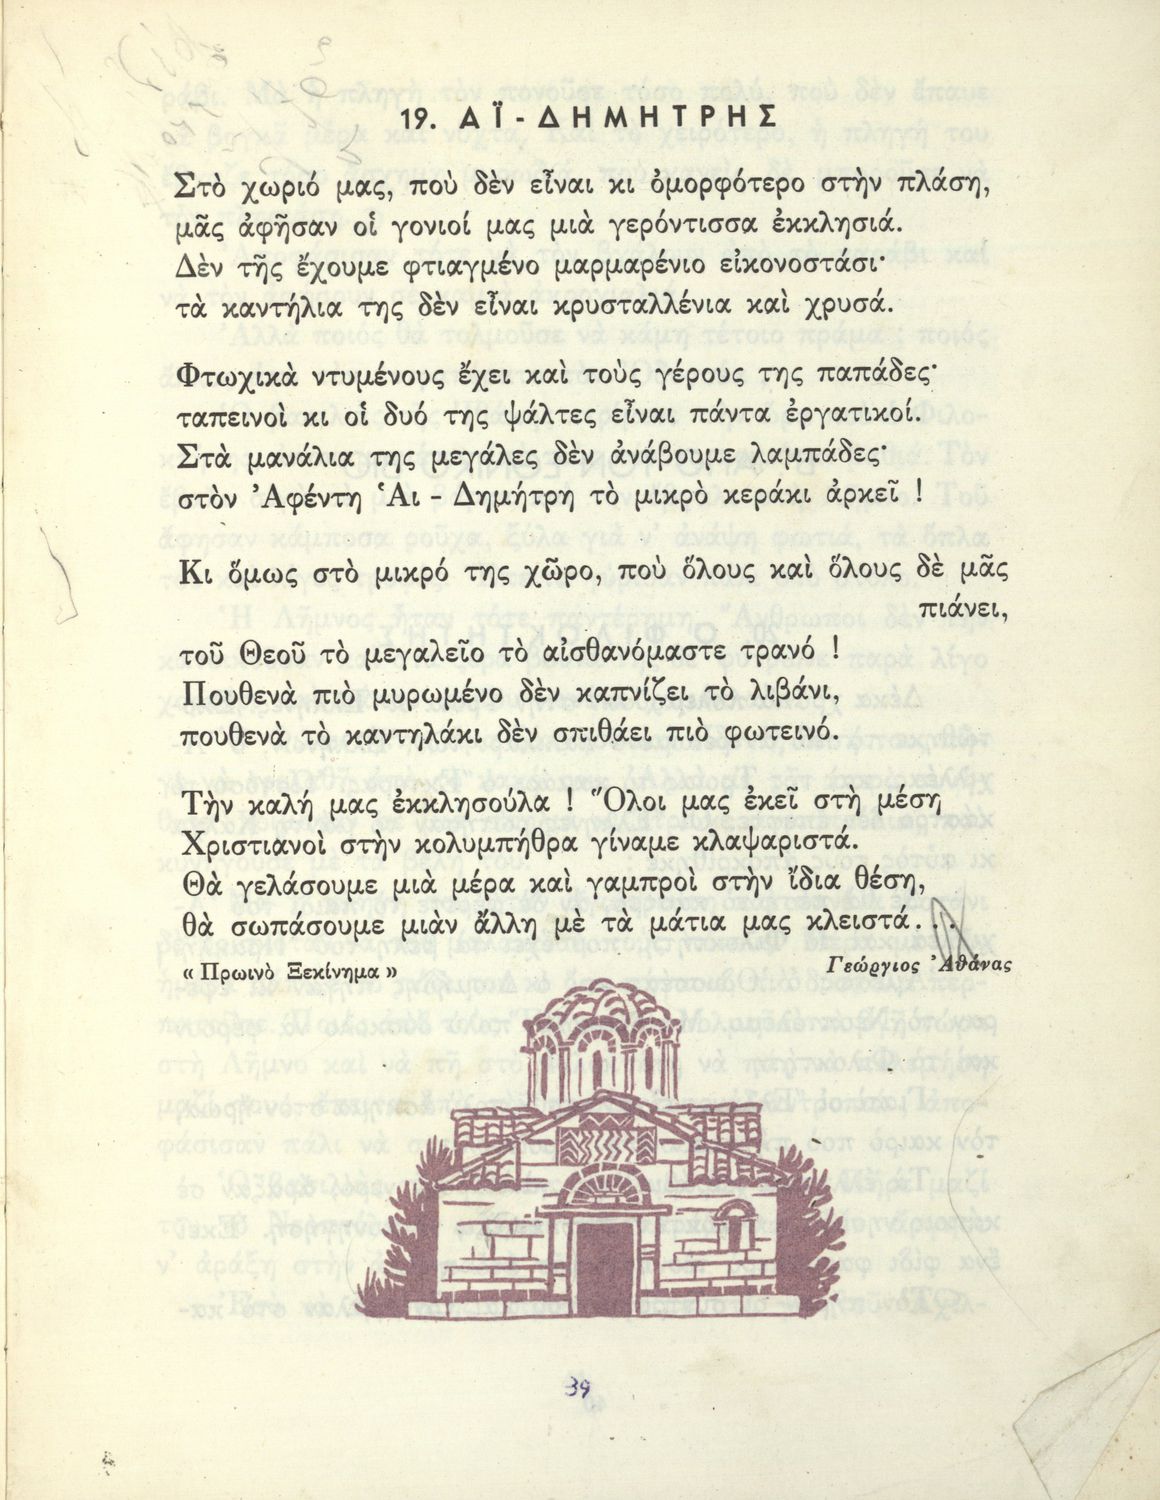 19. ΑΪ - ΔΗΜΗΤΡΗΣ
Στὸ χωριό μας, ποὺ δὲν εἶναι κι ὀμορφότερο στὴν πλάση,
μᾶς ἀφῆσαν οἱ γονιοί μας μιὰ γερόντισσα ἐκκλησιά.
Δὲν τῆς ἔχουμε φτιαγμένο μαρμαρένιο εἰκονοστάσι·
τὰ καντήλια της δὲν εἶναι κρυσταλλένια καὶ χρυσά.
Φτωχικὰ ντυμένους ἔχει καὶ τοὺς γέρους της παπάδες·
ταπεινοὶ κι οἱ δυό της ψάλτες εἶναι πάντα ἐργατικοί.
Στὰ μανάλια της μεγάλες δὲν ἀνάβουμε λαμπάδες·
στὸν Ἀφέντη Ἁι - Δημήτρη τὸ μικρὸ κεράκι ἀρκεῖ !
Κι ὅμως στὸ μικρό της χῶρο, ποὺ ὅλους καὶ ὅλους δὲ μᾶς
πιάνει,
τοῦ Θεοῦ τὸ μεγαλεῖο τὸ αἰσθανόμαστε τρανό !
Πουθενὰ πιὸ μυρωμένο δὲν καπνίζει τὸ λιβάνι,
πουθενὰ τὸ καντηλάκι δὲν σπιθάει πιὸ φωτεινό.
Τὴν καλή μας ἐκκλησούλα ! Ὅλοι μας ἐκεῖ στὴ μέση
Χριστιανοὶ στὴν κολυμπήθρα γίναμε κλαψαριστά.
Θὰ γελάσουμε μιὰ μέρα καὶ γαμπροὶ στὴν ἴδια θέση,
θὰ σωπάσουμε μιὰν ἄλλη μὲ τὰ μάτια μας κλειστά...
« Πρωινὸ Ξεκίνημα »
Γεώργιος Ἀθάνας
39